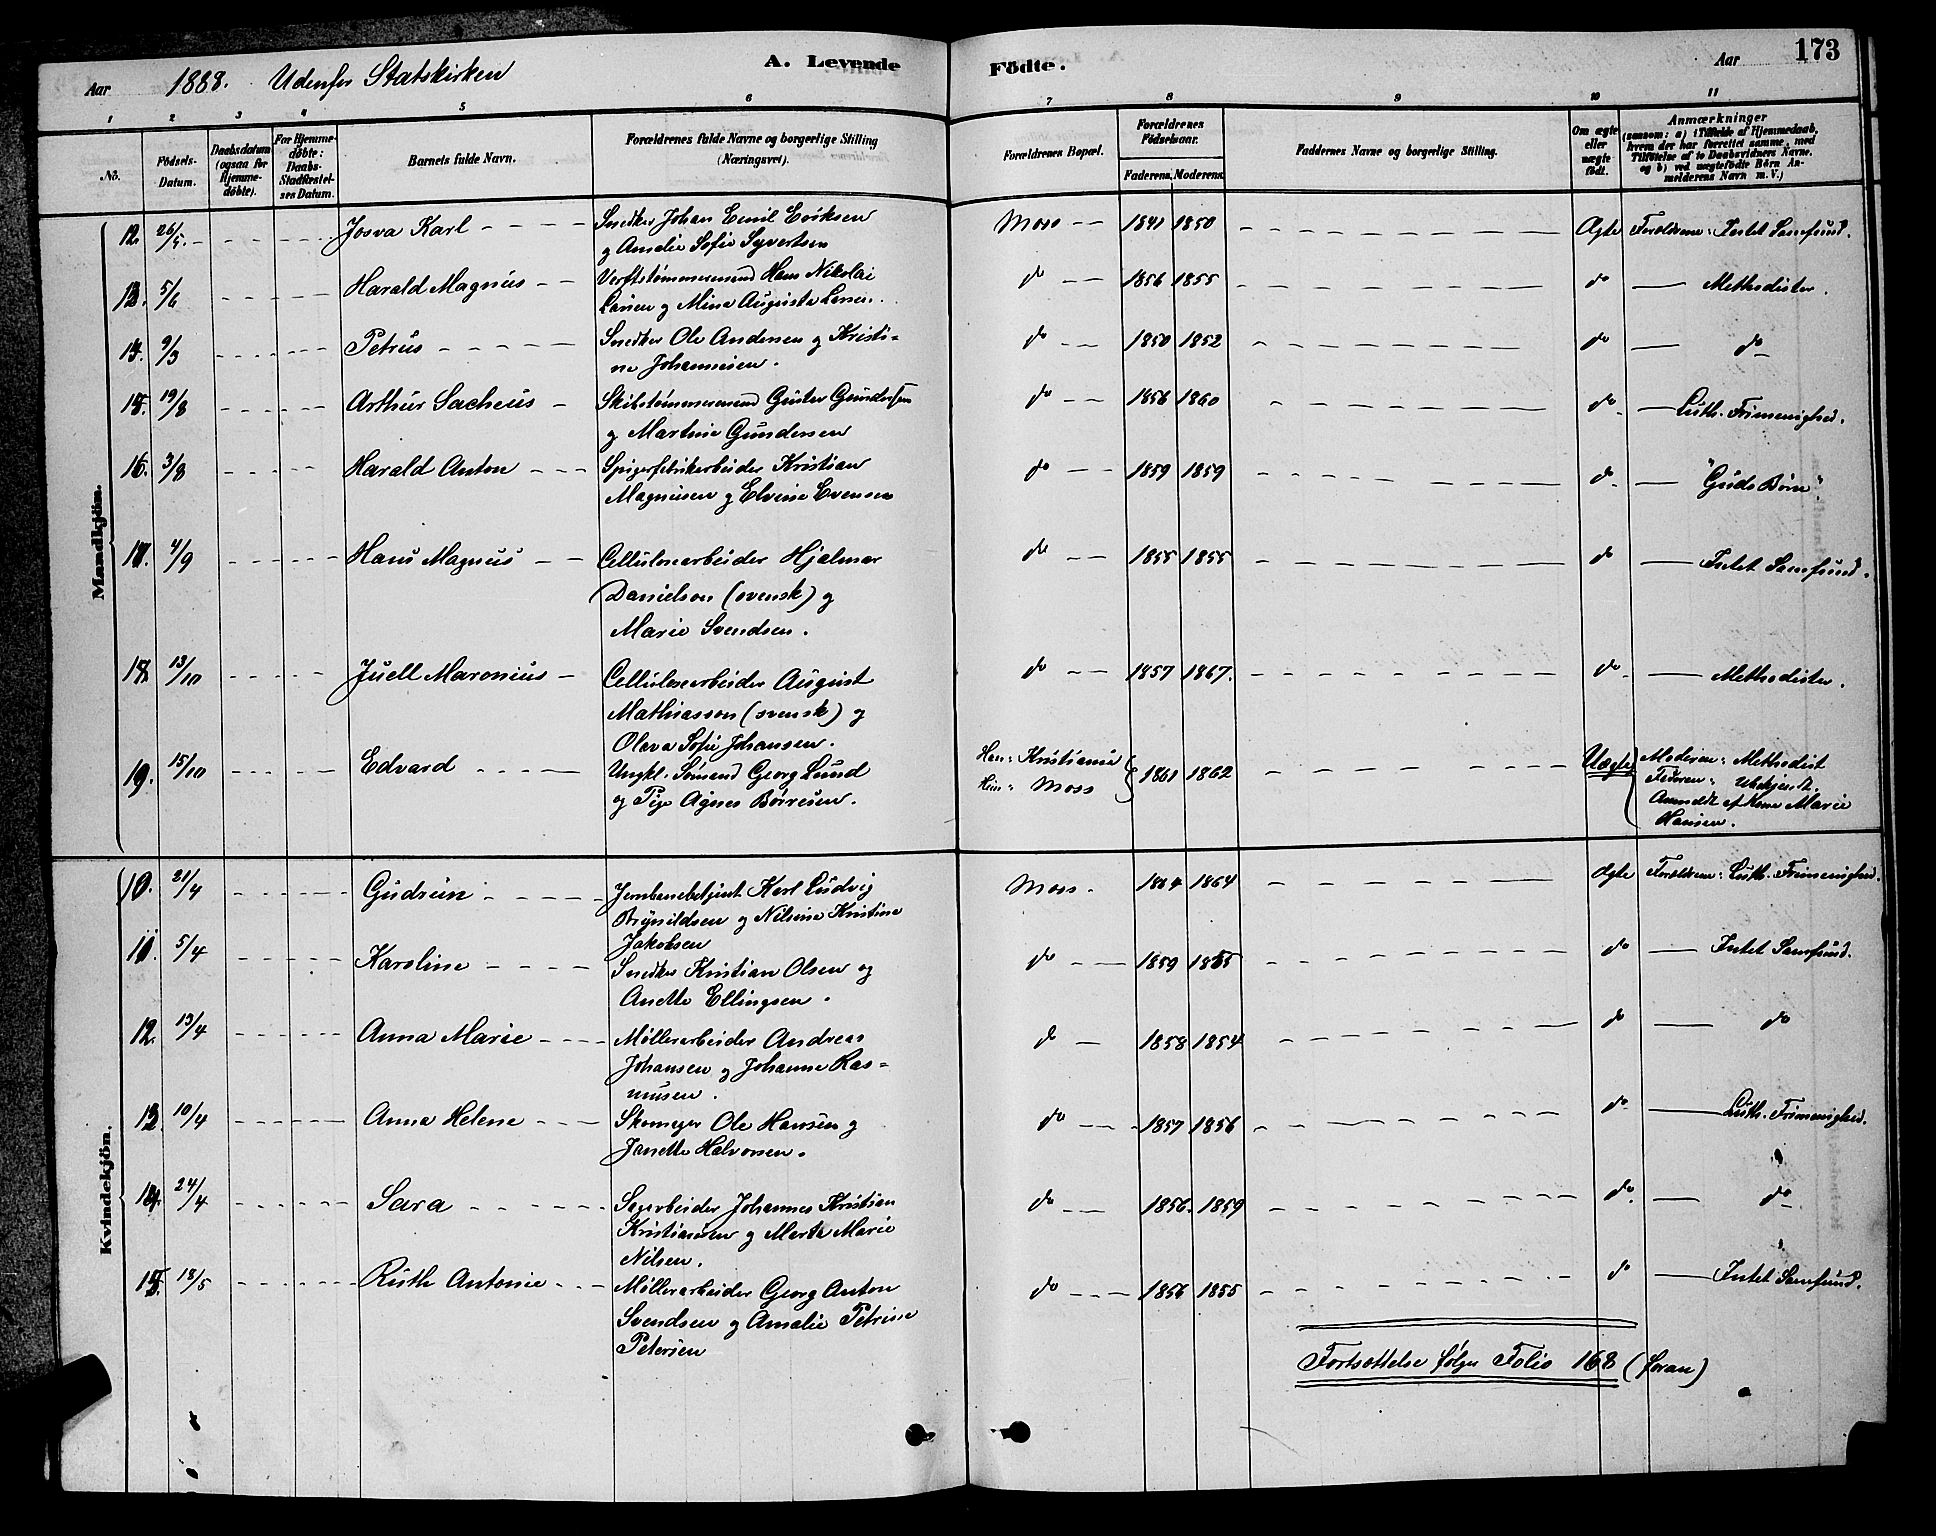 Aar 1888. Udenfor Statskirken A. Levende Födte. Aar 173
1 2 3 4 5 6 7 8 9 10 11
No. Födsels-Datum. Daabsdatum (ogsaa for Hjemmedöbte). For Hjemmedöbte: Daabs-Stadfæstelses Datum. Barnets fulde Navn. Forældrenes fulde Navne og borgerlige Stilling (Næringsvei). Forældrenes Bopæl. Forældrenes Födselsaar. Faderens. Moderens. Faddernes Navne og borgerlige Stilling. Om ægte eller uægte födt. Anmærkninger (saasom: a) i Tilfælde af Hjemmedaab, hvem der har forrettet samme, med Tilföielse af to Daabsvidners Navne, og b) ved uægtefödte Börn Anmelderens Navn m. V.)
Mandkjön.
12. 26/5. Josva Karl Snedker Johan Emil Eriksen Moss 1841 1850 Ægte Forældrene: Intet Samfund.
og Amalie Sofie Syvertsen
13. 5/6 Harald Magnus Verftstømmermand Hans Nikolai do 1856 1855 do Methodister.
Larsen og Mina Augusta Larsen.
14. 9/3 Petrus Snedker Ole Andersen og Kristi- do 1850 1852 do do
ne Johannesen.
15. 19/8 Arthur Sacheus Skibstømmermand Gustav Gundersen do 1856 1860 do Luth. Frimenighed.
og Martine Gundersen
16. 3/8 Harald Anton Spigerfabrikarbeider Kristian do 1859 1859 do "Guds Børn".
Magnusen og Elvine Evensen
17. 4/9 Hans Magnus Cellulosearbeider Hjalmar do 1855 1855 do Intet Samfund.
Danielson (svensk) og
Marie Svendsen.
18. 13/10 Juell Maronius Cellulosearbeider August do 1857 1867. do Methodister.
Mathiasson (svensk) og
Olava Sofie Johansen.
19. 15/10 Edvard Ungkl. Sømand Georg Lund Han: Kristiania 1861 1862 Uægte Moderen: Methodist
og Pige Agnes Børresen. Hun: Moss Faderen: Ubekjendt.
Anmeldt af Kone Marie
Hansen.
Kvindekjön.
10. 21/4 Gudrun Jernbanebetjent Karl Ludvig Moss. 1864 1864 Ægte Forældrene: Luth. Frimenighed.
Brynildsen og Nilsine Kristine
Jakobsen
11. 5/4 Karoline Snedker Kristian Olsen og do 1859 1865 do Intet Samfund.
Anette Ellingsen.
12. 13/4 Anna Marie Møllerarbeider Andreas do 1858 1854 do do
Johansen og Johanne Ras-
musen.
13. 10/4 Anna Helene Skomager Ole Hansen og do 1857 1856 do Luth. Frimenighed.
Janette Halvorsen.
14. 24/4 Sara Sagarbeider Johannes Kristian do 1856. 1859 do do
Kristiansen og Marta Marie
Nilsen.
15. 18/5 Ruth Antonie Møllerarbeider Georg Anton do 1856 1855 do Intet Samfund.
Svendsen og Amalie Petrine
Petersen
Fortsættelse følger Folio 168 (foran)